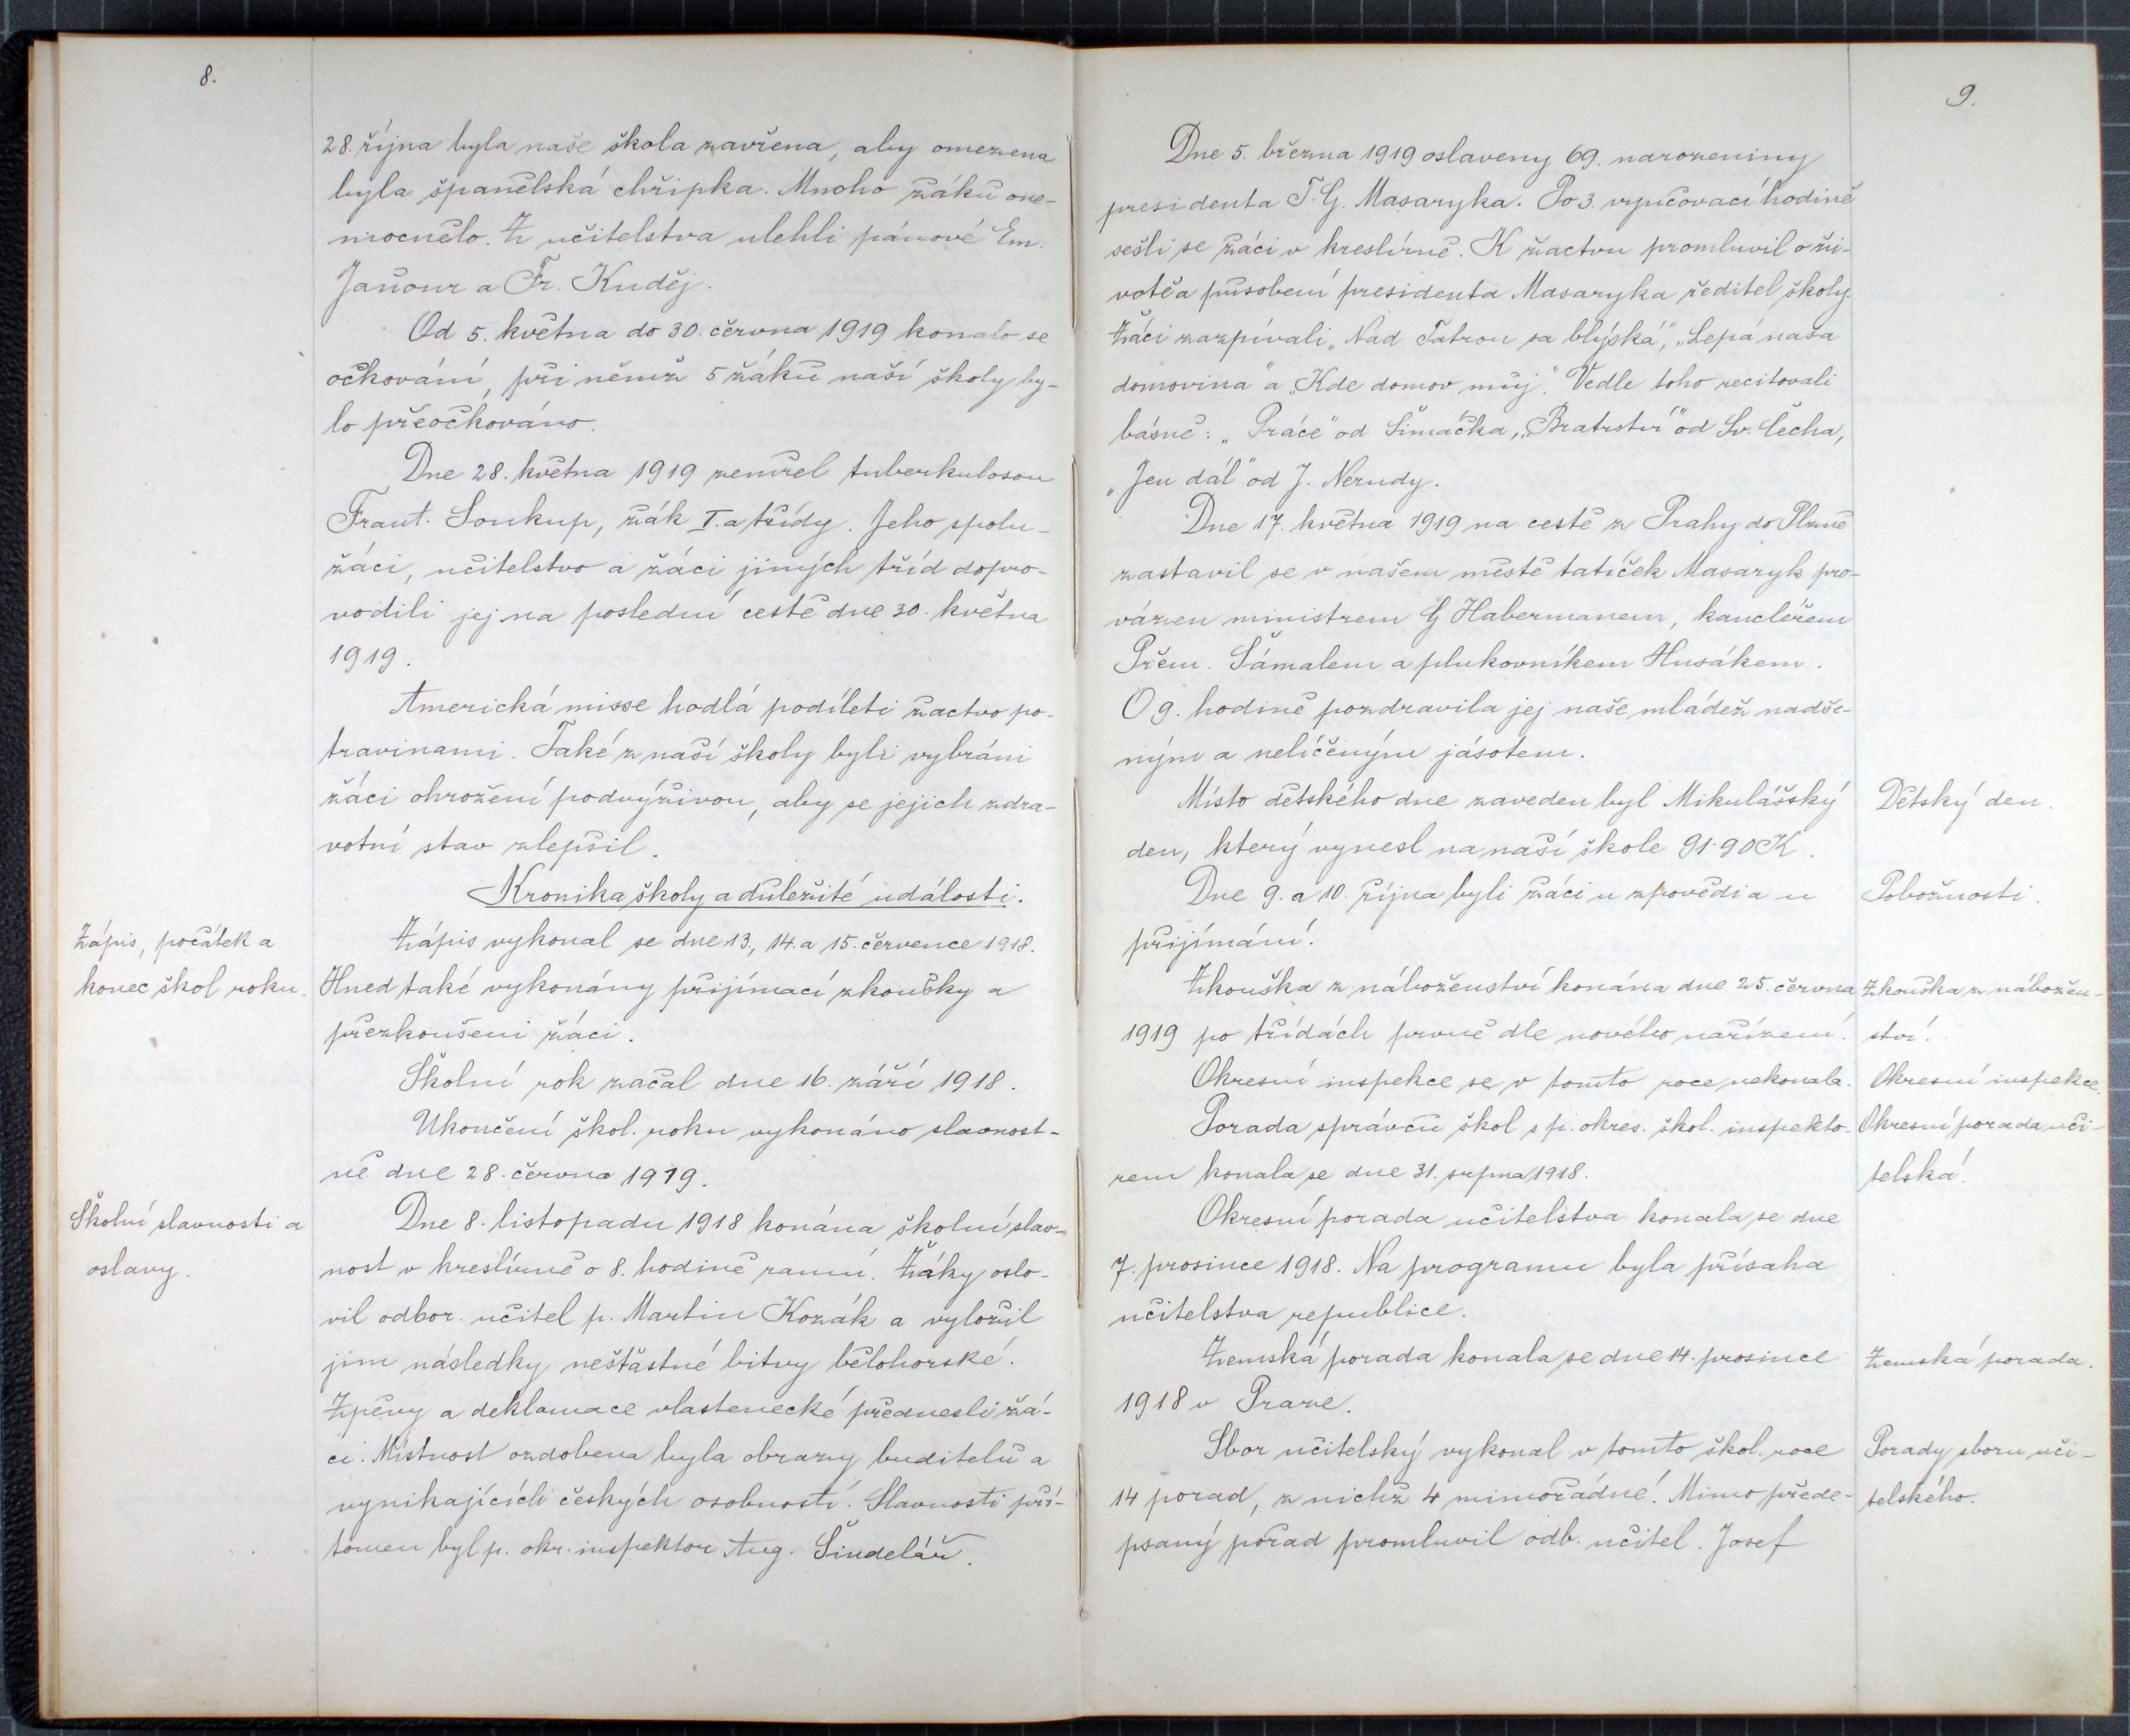 8.
28. října byla naše škola zavřena, aby omezena
byla španělská chřipka. Mnoho žáků one-
mocnělo. Z učitelstva ulehli pánové Em.
Janour a Fr. Kuděj.
Od 5. května do 30. června 1919 konalo se
očkování, při němž 5 žáků naší školy by-
lo přeočkováno.
Dne 28. května 1919 zemřel tuberkulosou
Frant. Soukup, žák I. a třídy. Jeho spolu-
žáci, učitelstvo a žáci jiných tříd dopro-
vodili jej na poslední cestě dne 30. května
1919.
Americká misse hodlá podíleti žactvo po-
travinami. Také z naší školy byli vybráni
žáci ohrožení podvýživou, aby se jejich zdra-
votní stav zlepšil.
Kronika školy a důležité události.
Zápis, počátek a
konec škol roku.
Zápis vykonal se dne 13., 14. a 15. července 1918.
Hned také vykonány přijímací zkoušky a
přezkoušeni žáci.
Školní rok začal dne 16. září 1918.
Ukončení škol. roku vykonáno slavnost-
ně dne 28. června 1919.
Školní slavnosti a
oslavy.
Dne 8. listopadu 1918 konána školní slav-
nost v kreslírně o 8. hodině ranní. Žáky oslo-
vil odbor. učitel p. Martin Kozák a vyložil
jim následky nešťastné bitvy bělohorské.
Zpěvy a deklamace vlastenecké přednesli žá-
ci. Místnost ozdobena byla obrazy buditelů a
vynikajících českých osobností. Slavnosti pří-
tomen byl p. okr. inspektor Aug. Šindelář.
9.
Dne 5. března 1919 oslaveny 69. narozeniny
presidenta T. G. Masaryka. Po 3. vyučovací hodině
sešli se žáci v kreslírně. K žactvu promluvil o ži-
votě a působení presidenta Masaryka ředitel školy.
Žáci zazpívali „Nad Tatrou sa blýská", „Lepá naša
domovina" a „Kde domov můj." Vedle toho recitovali
básně: „Práce" od Šimáčka, „Bratrství" od Sv. Čecha,
„Jen dál" od J. Nerudy.
Dne 17. května 1919 na cestě z Prahy do Plzně
zastavil se v našem městě tatíček Masaryk pro-
vázen ministrem G Habermanem, kancléřem
Přem. Šámalem a plukovníkem Husákem.
O 9. hodině pozdravila jej naše mládež nadše-
ným a nelíčeným jásotem.
Místo dětského dne zaveden byl Mikulášský
den, který vynesl na naší škole 91·90 K.
Dětský den.
Dne 9. a 10. října byli žáci u zpovědi a u
přijímání.
Pobožnosti.
Zkouška z náboženství konána dne 25. června
1919 po třídách prvně dle nového nařízení.
Zkouška z nábožen-
ství.
Okresní inspekce se v tomto roce nekonala.
Okresní inspekce.
Porada správců škol s p. okres. škol. inspekto-
rem konala se dne 31. srpna 1918.
Okresní porada uči-
telská.
Okresní porada učitelstva konala se dne
7. prosince 1918. Na programu byla přísaha
učitelstva republice.
Zemská porada konala se dne 14. prosince
1918 v Praze.
Zemská porada.
Sbor učitelský vykonal v tomto škol. roce
14 porad, z nichž 4 mimořádné. Mimo přede-
psaný pořad promluvil odb. učitel. Josef
Porady sboru uči-
telského.